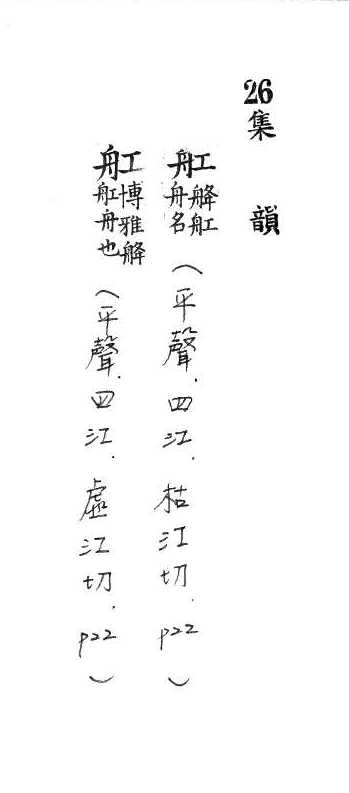 26集韻
舡舽舡舟名(平聲.四江.枯江切.p22)
舡博雅舽舡舟也(平聲.四江.虛江切.p22)